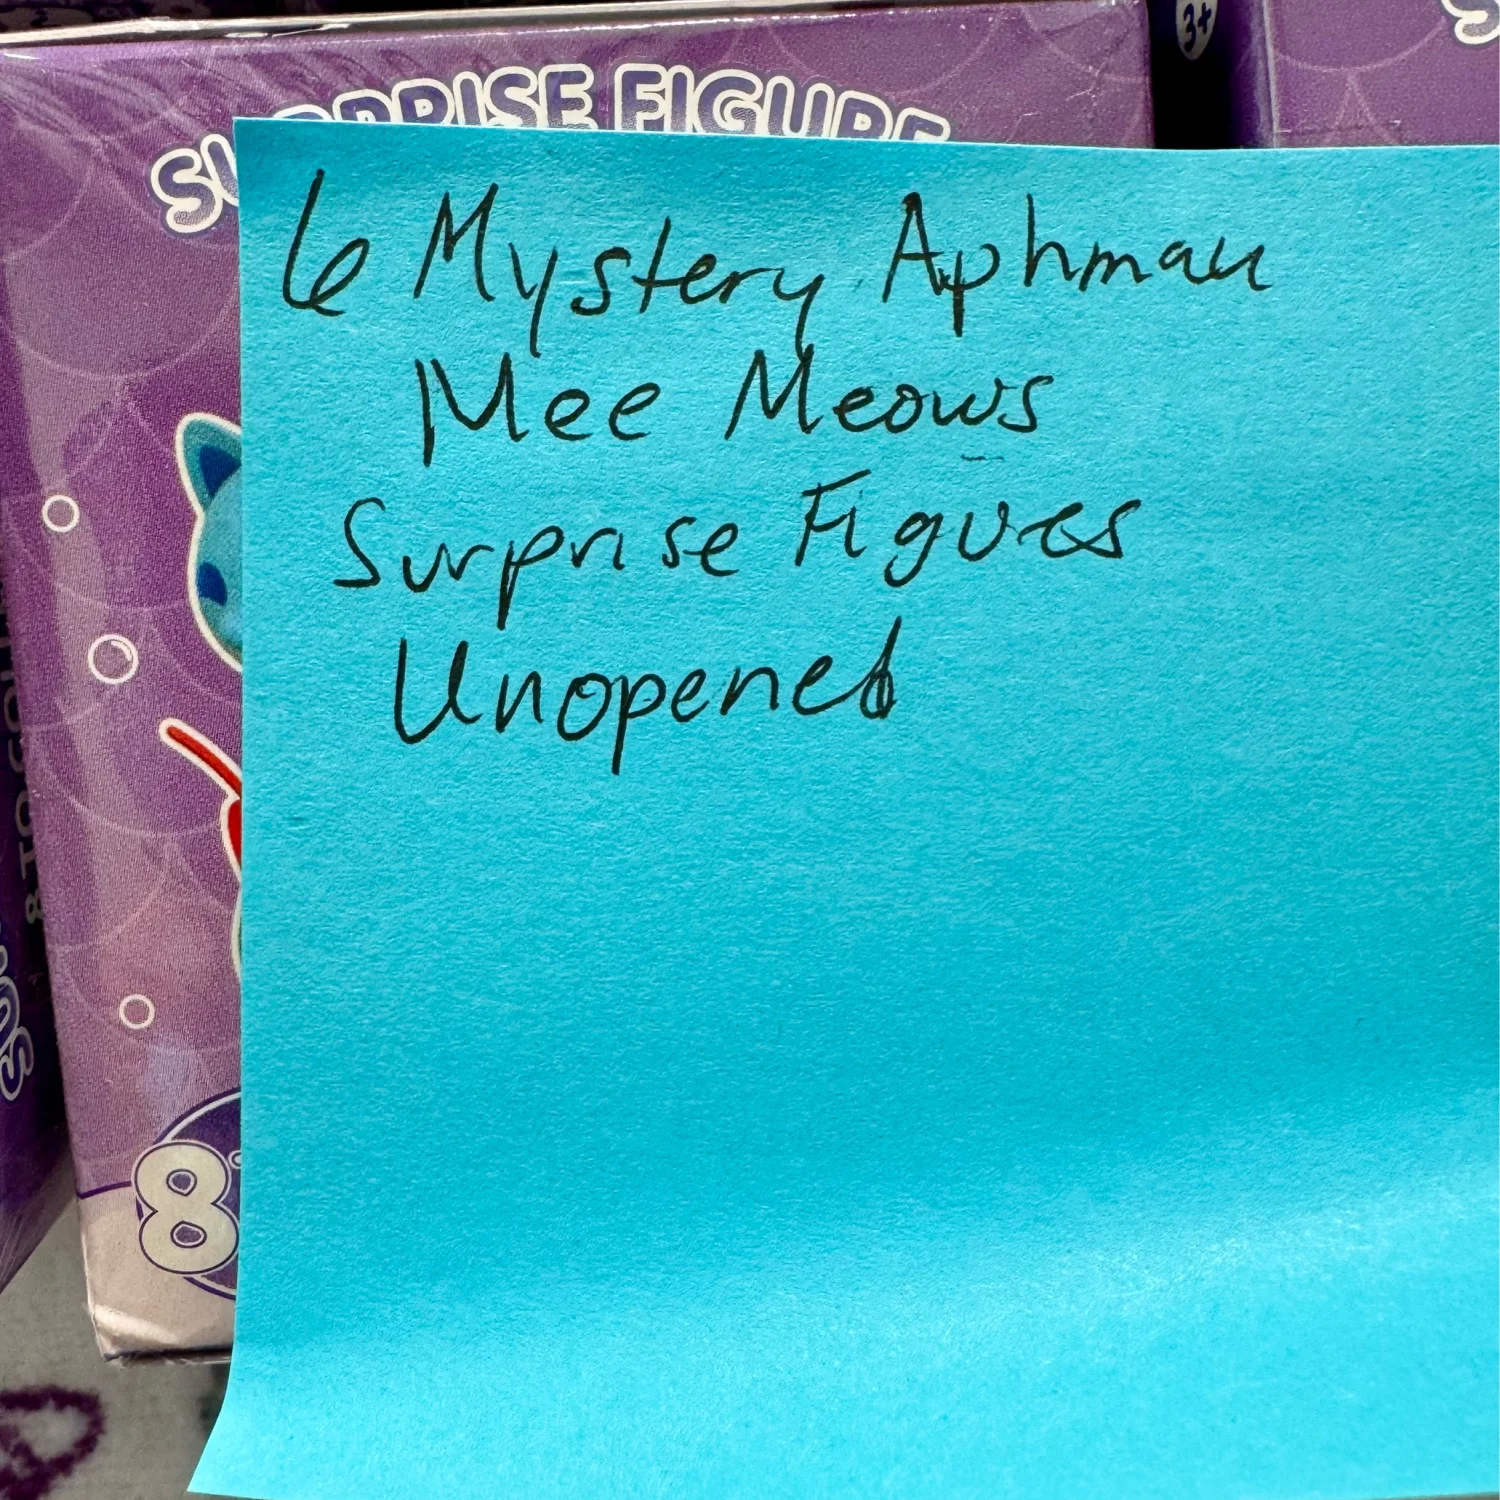 3+
SURPRISE FIGURE
6 Mystery Aphmau
Mee Meows
Surprise Figures
Unopened
8
8 TO COLL